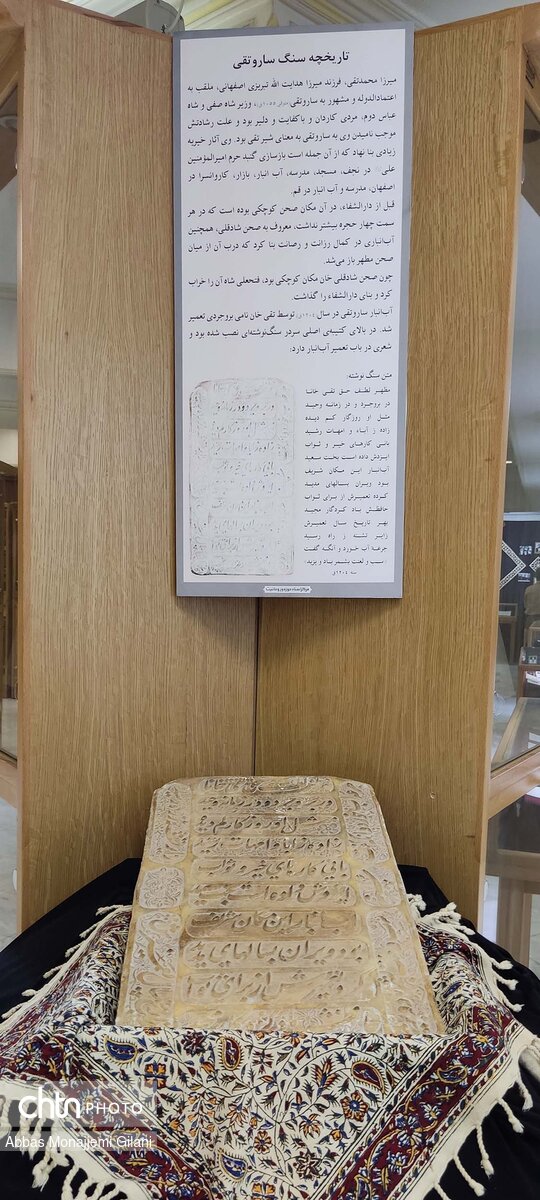 تاریخچه سنگ ساروتقی
میرزا محمدتقی، فرزند میرزا هدایت الله تبریزی اصفهانی، ملقب به
اعتمادالدوله و مشهور به ساروتقی وزیر شاه صفی و شاه
عباس دوم، مردی کاردان و باکفایت و دلیر بود و علت رشادتش
موجب نامیدن وی به ساروتقی به معنای شیر تقی بود. وی آثار خیریه
زیادی بنا نهاد که از آن جمله است بازسازی گنبد حرم امیرالمؤمنین
علی در نجف، مسجد، مدرسه، آب انبار، بازار، کاروانسرا در
اصفهان، مدرسه و آب انبار در قم.
قبل از دارالشفاء، در آن مکان صحن کوچکی بوده است که در هر
سمت چهار حجره بیشتر نداشت، معروف به صحن شادقلی، همچنین
آب‌انباری در کمال رزانت و رصانت بنا کرد که درب آن از میان
صحن مطهر باز می‌شد.
چون صحن شادقلی خان مکان کوچکی بود، فتحعلی شاه آن را خراب
کرد و بنای دارالشفاء را گذاشت.
آب‌انبار ساروتقی در سال ۱۲۰۴ق توسط تقی خان نامی بروجردی تعمیر
شد. در بالای کتیبه‌ی اصلی سردر سنگ‌نوشته‌ای نصب شده بود و
شعری در باب تعمیر آب‌انبار دارد:
متن سنگ نوشته:
مظهر لطف حق تقی خانا
در بروجرد و در زمانه وحید
مثل او روزگار کم دیده
زاده ز آباء و امهات رشید
بانی کارهای خیر و ثواب
ایزدش داده است بخت سعید
آب‌انبار این مکان شریف
بود ویران بسالهای مدید
کرده تعمیرش از برای ثواب
حافظش باد کردگار مجید
بهر تاریخ سال تعمیرش
زایر تشنه ز راه رسید
جرعه آب خورد و آنگه گفت
سیب و لعنت بشمر باد و یزید
سنه ۱۲۰۴ق
chtn PHOTO
Abbas Monajjemi Gilani